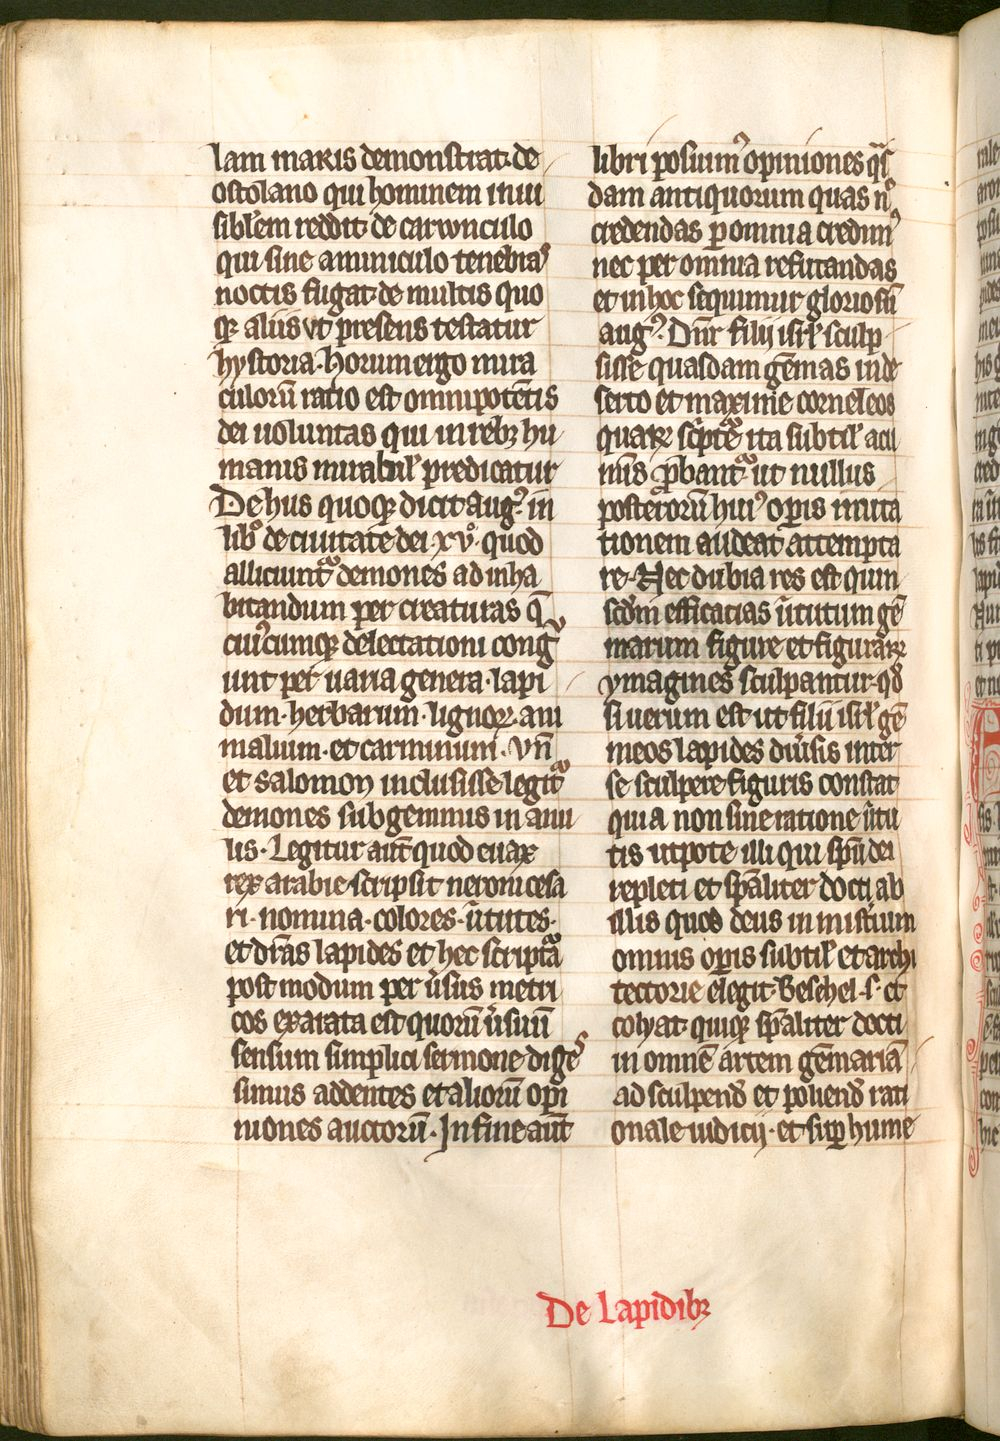 lam maris demonstrat· de
ostolano qui hominem inui
sibl'em reddit· de carwnculo
qui sine aminiculo tenebraꝰ
noctis fugat· de multis quo
qꝫ aliis vt presens testatur
hystoria· horum ergo mira
culorū ratio est omnipotētis
dei uoluntas qui in rebꝫ hu
manis mirabil' predicatur
De hiis quoqꝫ dicit augꝰ· in
lib° de ciuitate dei ·xv°· quod
alliciuntᷓ demones ad inha
bitandum per creaturas q̄
cuiꝰcumqꝫ delectationi congͮ
unt per uaria genera· lapi
dum· herbarum· lignoꝝ· ani
malium· et carminum· vn̄
et salomon inclusisse legitᷓ
demones sub gemmis in anu
lis· Legitur aūt quod euax
rex arabie scripsit neroni cesa
ri· nomina· colores· ūtutes·
et drās lapides et hec scriptᷓa
post modum per ūsus metri
cos exarata est quorū ūsuū
sensum simplici sermone digeˢ
simus addentes et aliorū opi
niones auctorū· In fine aūt
libri posuimꝰ opiniones qᷓs
dam antiquorum quas n°
credendas ꝑ omnia credimꝰ
nec per omnia refutandas
et in hoc sequimur gloriosū
augꝰ· Dn̄r filij isrl' sculp
sisse quasdam gēmas in de
serto et maxime corneleos
quaꝝ scͥptᷓe ita subtil' acu
mīs ꝓbantᷓ ut nullus
posterorū huiꝰ opis imita
tionem audeat attempta
re· Nec dubia res est quin
scdm̄ efficacias ūtutum gē
marum figure et figuraꝝ
ymagines sculpantur· qd̄
si uerum est ut filii isrl' gē
meos lapides diūsis inter
se sculpere figuris constat
quia non sine ratione ūtu
tis utpote illi qui spū dei
repleti et spāliter docti ab
illis quos deus in mistium
omnis opis subtil' et archi
tectorie elegit· Beselhel ·s· et
colyat quiqꝫ spāliter docti
in omnē artem gēmariā
ad sculpend' et poliend' rati
onale iudicij· et suꝑ hume
De Lapidibꝫ